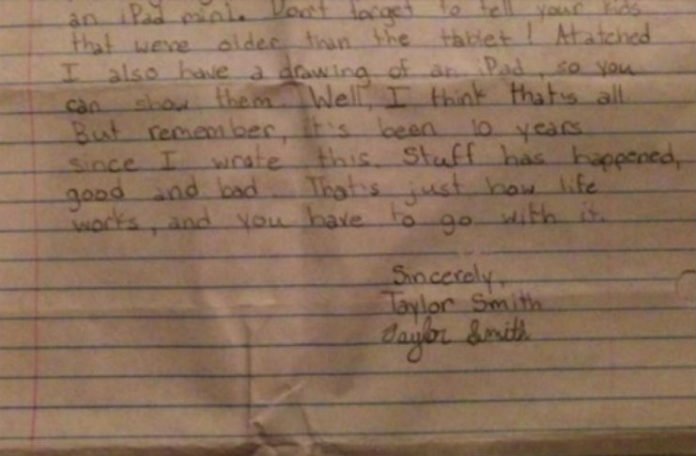 an iPad mini. Don't forget to tell your kids
that we're older than the tablet! Atatched
I also have a drawing of an iPad, so you
can show them. Well, I think that's all.
But remember, it's been 10 years
since I wrote this. Stuff has happened,
good and bad. That's just how life
works, and you have to go with it.
Sincerely,
Taylor Smith
Taylor Smith